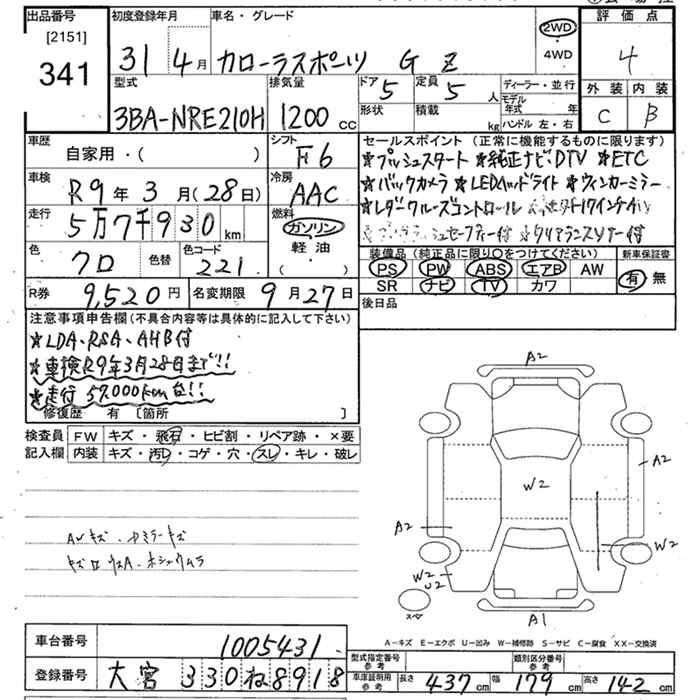 出品番号 初度登録年月 車名・グレード 評価点
[2151]
341 31 4月 カローラスポーツ G Z 2WD・4WD 4
型式 排気量 ドア 5 定員 5人 ディーラー・並行 外装 内装
3BA-NRE210H 1200cc 形状 積載 kg モデル年式 年 ハンドル 左・右 C B
車歴 シフト セールスポイント (正常に機能するものに限ります)
自家用・( ) F6 ★プッシュスタート ★純正ナビDTV ★ETC
車検 冷房 ★バックカメラ ★LEDヘッドライト ★ウィンカーミラー
R9年3月(28日) AAC ★レダークルーズコントロール
走行 5万7千930km 燃料 ガソリン
軽油・( )
色 クロ 色替 色コード 221 装備品 (純正品に限り○をつけてください) 新車保証書
PS PW ABS エアB AW 有 無
SR ナビ TV カワ
R券 9,520円 名変期限 9月27日 後日品
注意事項申告欄(不具合内容等は具体的に記入して下さい)
★LDA、RSA、AHB付
★車検R9年3月28日まで!!
★走行57,000km台!!
修復歴 有 [箇所 ]
検査員 FW キズ・飛石・ヒビ割・リペア跡・×要
記入欄 内装 キズ・汚レ・コゲ・穴・スレ・キレ・破レ
A2
A2
W2
A2
W2
W2
U2
A1
AWキズ
A-キズ E-エクボ U-凹み W-補修跡 S-サビ C-腐食 XX-交換済
車台番号 1005431
登録番号 大宮 330 ね 8918
型式指定番号参考 類別区分番号参考
車庫証明用参考 長さ 437cm 幅 179cm 高さ 142cm